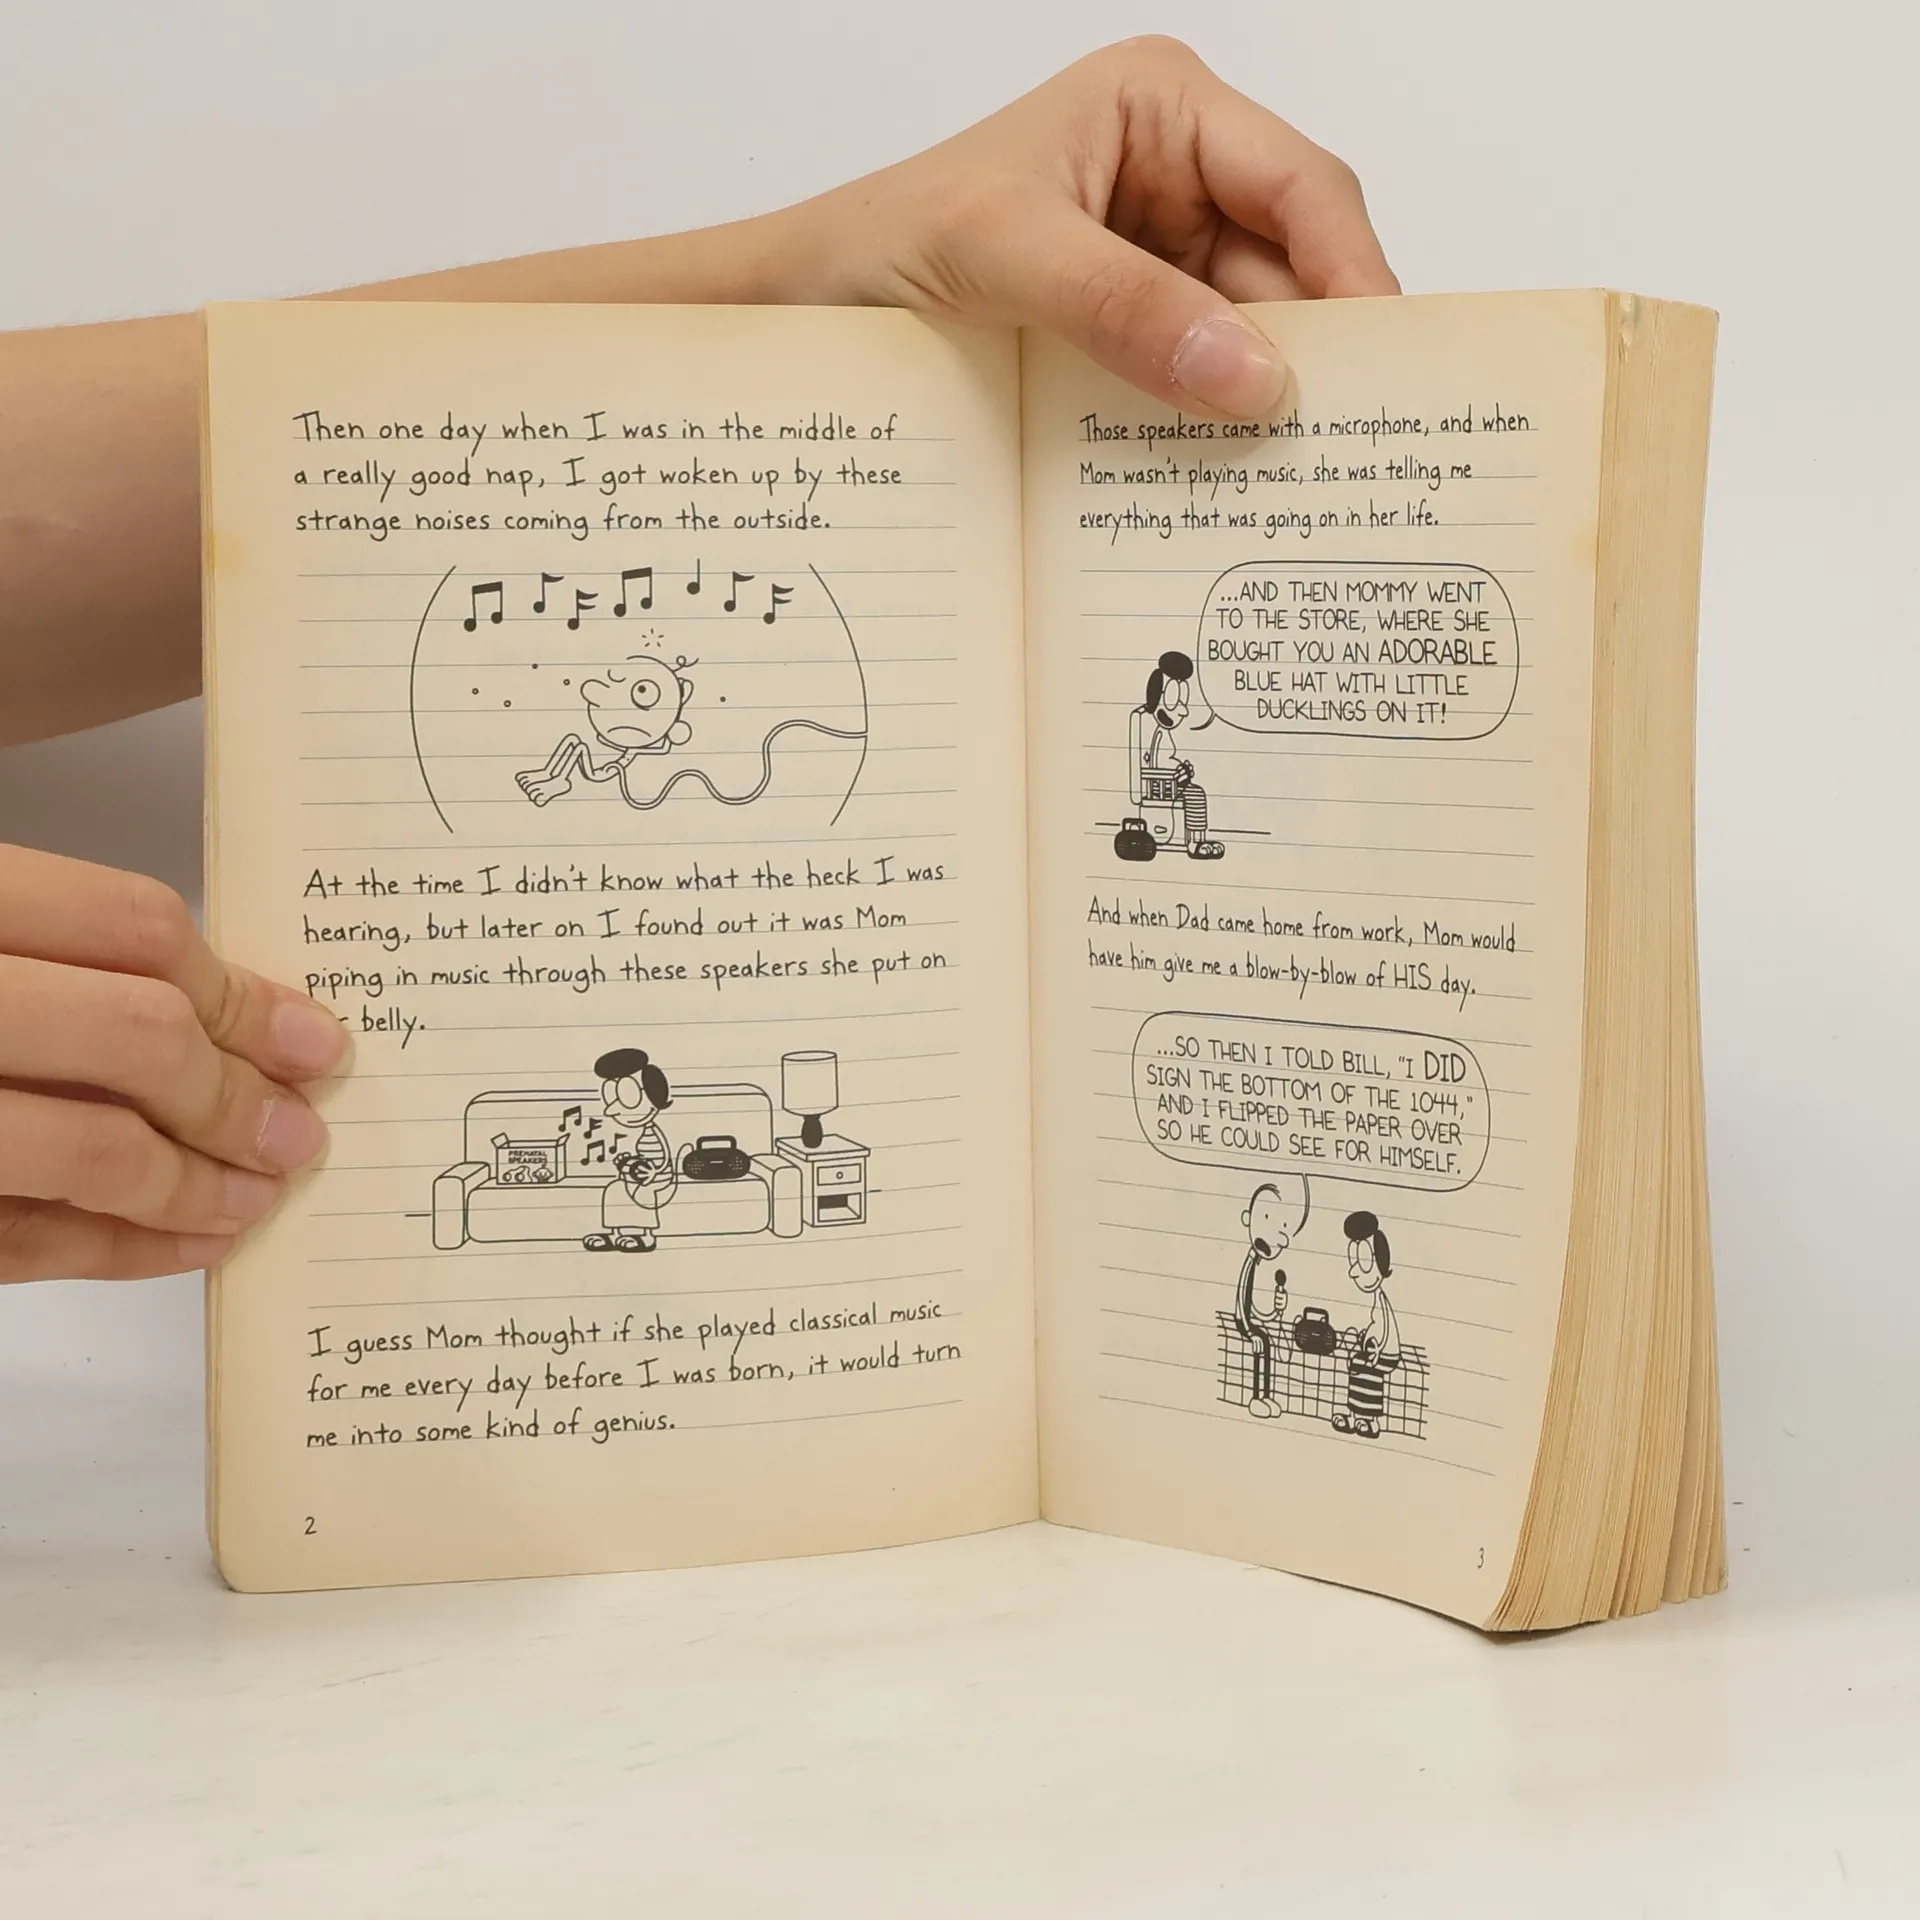 Then one day when I was in the middle of
a really good nap, I got woken up by these
strange noises coming from the outside.
At the time I didn't know what the heck I was
hearing, but later on I found out it was Mom
piping in music through these speakers she put on
belly.
PRENATAL
SPEAKERS
I guess Mom thought if she played classical music
for me every day before I was born, it would turn
me into some kind of genius.
2
Those speakers came with a microphone, and when
Mom wasn't playing music, she was telling me
everything that was going on in her life.
...AND THEN MOMMY WENT
TO THE STORE, WHERE SHE
BOUGHT YOU AN ADORABLE
BLUE HAT WITH LITTLE
DUCKLINGS ON IT!
And when Dad came home from work, Mom would
have him give me a blow-by-blow of HIS day.
...SO THEN I TOLD BILL, "I DID
SIGN THE BOTTOM OF THE 1044,"
AND I FLIPPED THE PAPER OVER
SO HE COULD SEE FOR HIMSELF.
3